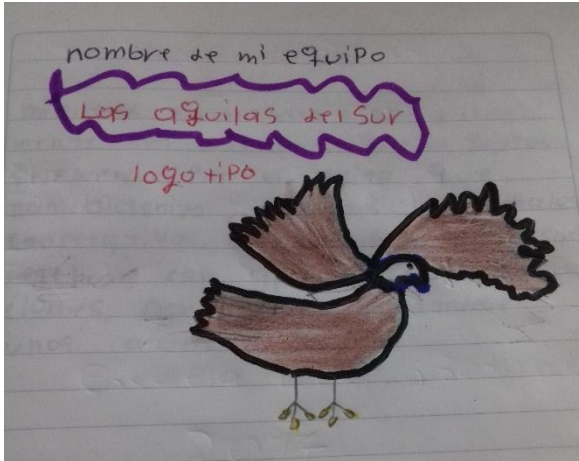 nombre de mi equipo
Las aguilas del Sur
logotipo